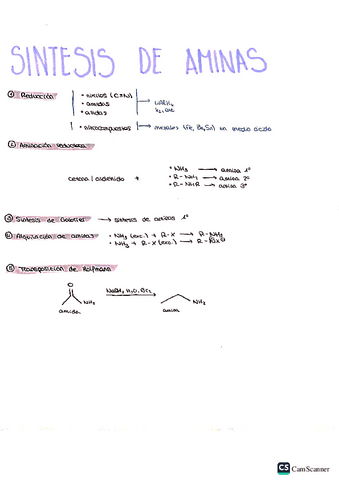 SINTESIS DE AMINAS
① Reducción
• nitrilos (C≡N)
• amidas
• azidas
LiAlH₄
H₂, cat
• nitrocompuestos → metales (Fe, Sn) en medio ácido
② Aminación reductora
cetona / aldehído +
• NH₃ → amina 1º
• R-NH₂ → amina 2º
• R-NHR → amina 3º
③ Síntesis de Gabriel → síntesis de aminas 1º
④ Alquilación de aminas
• NH₃ (exc.) + R-X → R-NH₂
• NH₃ + R-X (exc.) →
⑤ Transposición de Hofmann
O
NH₂
amida
NaOH, H₂O, Br₂
NH₂
amina
CS CamScanner